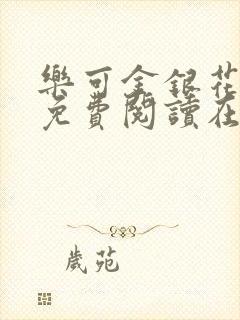 樂可金銀花
免費閱讀在
歲苑